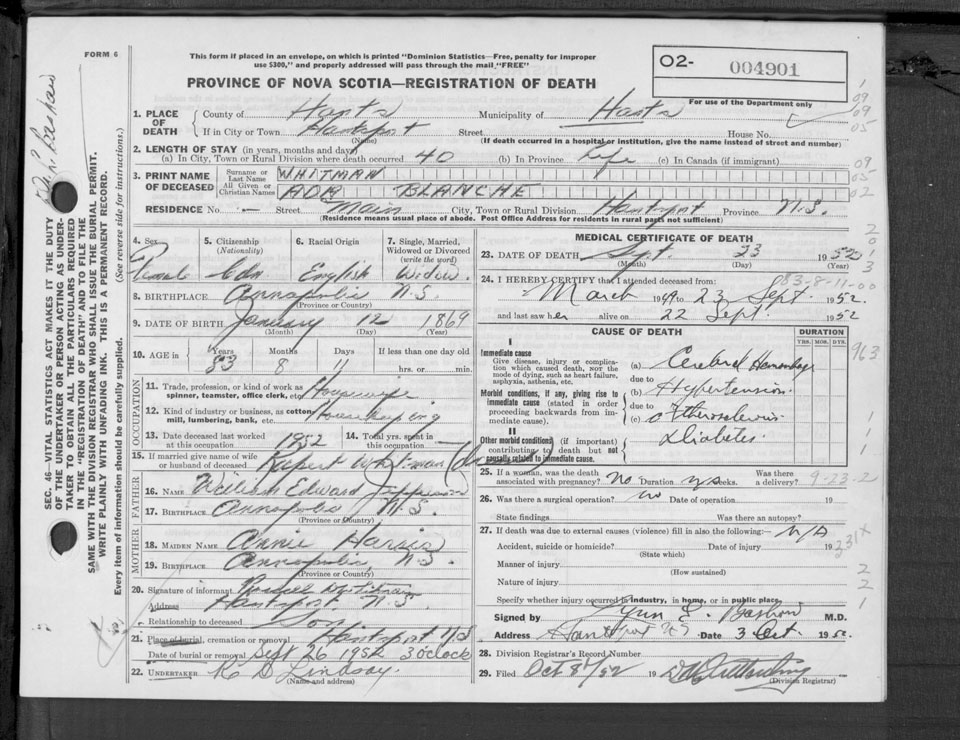 FORM 6
This form if placed in an envelope, on which is printed "Dominion Statistics—Free, penalty for improper
use $300," and properly addressed will pass through the mail "FREE"
PROVINCE OF NOVA SCOTIA—REGISTRATION OF DEATH
O2- 004901
For use of the Department only
1. PLACE OF DEATH County of Hants Municipality of Hants
If in City or Town Hantsport Street House No.
(Name) (If death occurred in a hospital or institution, give the name instead of street and number)
2. LENGTH OF STAY (in years, months and days)
(a) In City, Town or Rural Division where death occurred 40 (b) In Province Life (c) In Canada (if immigrant)
3. PRINT NAME OF DECEASED Surname or Last Name WHITMAN
All Given or Christian Names ADA BLANCHE
RESIDENCE No. — Street Main City, Town or Rural Division Hantsport Province N.S.
(Residence means usual place of abode. Post Office Address for residents in rural parts not sufficient)
4. Sex 5. Citizenship (Nationality) 6. Racial Origin 7. Single, Married, Widowed or Divorced (write the word)
Female Cdn English Widow.
8. BIRTHPLACE Annapolis N.S.
(Province or Country)
9. DATE OF BIRTH January 12 1869
(Month) (Day) (Year)
10. AGE in Years Months Days If less than one day old
83 8 11 hrs. or min.
OCCUPATION
11. Trade, profession, or kind of work as spinner, teamster, office clerk, etc. Housewife
12. Kind of industry or business, as cotton mill, lumbering, bank, etc. Housekeeping
13. Date deceased last worked at this occupation 1952 14. Total yrs. spent in this occupation —
15. If married give name of wife or husband of deceased Rupert Whitman
FATHER
16. NAME William Edward
17. BIRTHPLACE Annapolis N.S.
(Province or Country)
MOTHER
18. MAIDEN NAME Annie Harris
19. BIRTHPLACE Annapolis, N.S.
(Province or Country)
20. Signature of informant Russell Whitman
Address Hantsport N.S.
Relationship to deceased Son
21. Place of burial, cremation or removal Hantsport N.S.
Date of burial or removal Sept 26 1952 3 o'clock
22. UNDERTAKER Lindsay.
(Name and address)
MEDICAL CERTIFICATE OF DEATH
23. DATE OF DEATH Sept. 23 1952
(Month) (Day) (Year)
24. I HEREBY CERTIFY that I attended deceased from
083-8-11-00
March 1949 to 23 Sept. 1952.
and last saw her alive on 22 Sept. 1952
CAUSE OF DEATH DURATION
YRS. MOS. DYS.
I
Immediate cause
Give disease, injury or complication which caused death, nor the mode of dying, such as heart failure, asphyxia, asthenia, etc.
(a) Cerebral Hemorrhage
due to
Morbid conditions, if any, giving rise to immediate cause (stated in order proceeding backwards from immediate cause).
(b) Hypertension.
due to
(c)
II
Other morbid conditions (if important) contributing to death but not causally related to immediate cause.
Diabetes.
25. If a woman, was the death associated with pregnancy? no Duration weeks. Was there a delivery?
9-23-2
26. Was there a surgical operation? no Date of operation 19
State findings Was there an autopsy?
27. If death was due to external causes (violence) fill in also the following:— N/A
Accident, suicide or homicide? Date of injury 19
(State which)
331X
Manner of injury
(How sustained)
Nature of injury
Specify whether injury occurred in industry, in home, or in public place.
Signed by Lynn Bashow M.D.
Address Hantsport Date 3 Oct. 1952.
28. Division Registrar's Record Number
29. Filed Oct 8/52 19
(Division Registrar)
SEC. 46—VITAL STATISTICS ACT MAKES IT THE DUTY
OF THE UNDERTAKER OR PERSON ACTING AS UNDER-
TAKER TO OBTAIN ALL THE PARTICULARS REQUIRED
IN THE "REGISTRATION OF DEATH" AND TO FILE THE
SAME WITH THE DIVISION REGISTRAR WHO SHALL ISSUE THE BURIAL PERMIT.
WRITE PLAINLY WITH UNFADING INK. THIS IS A PERMANENT RECORD.
Every item of information should be carefully supplied. (See reverse side for instructions.)
09
09
05
09
05
02
2
0
1
3
963
1
1
1
2
2
1